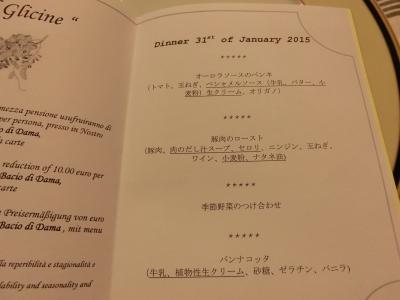 Glicine “
mezza pensione usufruiranno di
per persona, presso in Nostro
di Dama,
la carte
reduction of 10.00 euro per
Bacio di Dama,
carte
e Preisermäßigung von euro
Bacio di Dama , mit menu
lla reperibilità e stagionalità e
lability and seasonality and
Dinner 31st of January 2015
*****
オーロラソースのペンネ
(トマト、玉ねぎ、ベシャメルソース（牛乳、バター、小
麦粉）生クリーム、オリガノ)
*****
豚肉のロースト
(豚肉、肉のだし汁スープ、セロリ、ニンジン、玉ねぎ、
ワイン、小麦粉、ナタネ油)
*****
季節野菜のつけ合わせ
*****
パンナコッタ
(牛乳、植物性生クリーム、砂糖、ゼラチン、バニラ)